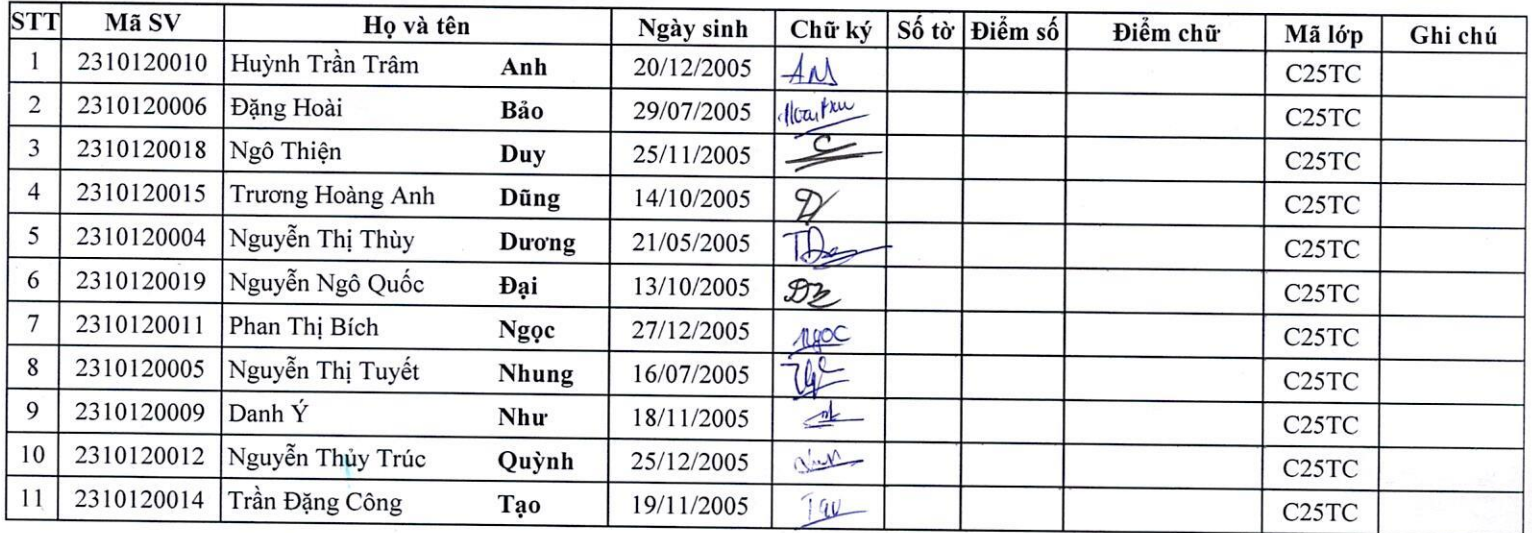 STT Mã SV Họ và tên Ngày sinh Chữ ký Số tờ Điểm số Điểm chữ Mã lớp Ghi chú
1 2310120010 Huỳnh Trần Trâm Anh 20/12/2005 C25TC
2 2310120006 Đặng Hoài Bảo 29/07/2005 C25TC
3 2310120018 Ngô Thiện Duy 25/11/2005 C25TC
4 2310120015 Trương Hoàng Anh Dũng 14/10/2005 C25TC
5 2310120004 Nguyễn Thị Thùy Dương 21/05/2005 C25TC
6 2310120019 Nguyễn Ngô Quốc Đại 13/10/2005 C25TC
7 2310120011 Phan Thị Bích Ngọc 27/12/2005 Ngọc C25TC
8 2310120005 Nguyễn Thị Tuyết Nhung 16/07/2005 C25TC
9 2310120009 Danh Ý Như 18/11/2005 C25TC
10 2310120012 Nguyễn Thủy Trúc Quỳnh 25/12/2005 C25TC
11 2310120014 Trần Đặng Công Tạo 19/11/2005 C25TC